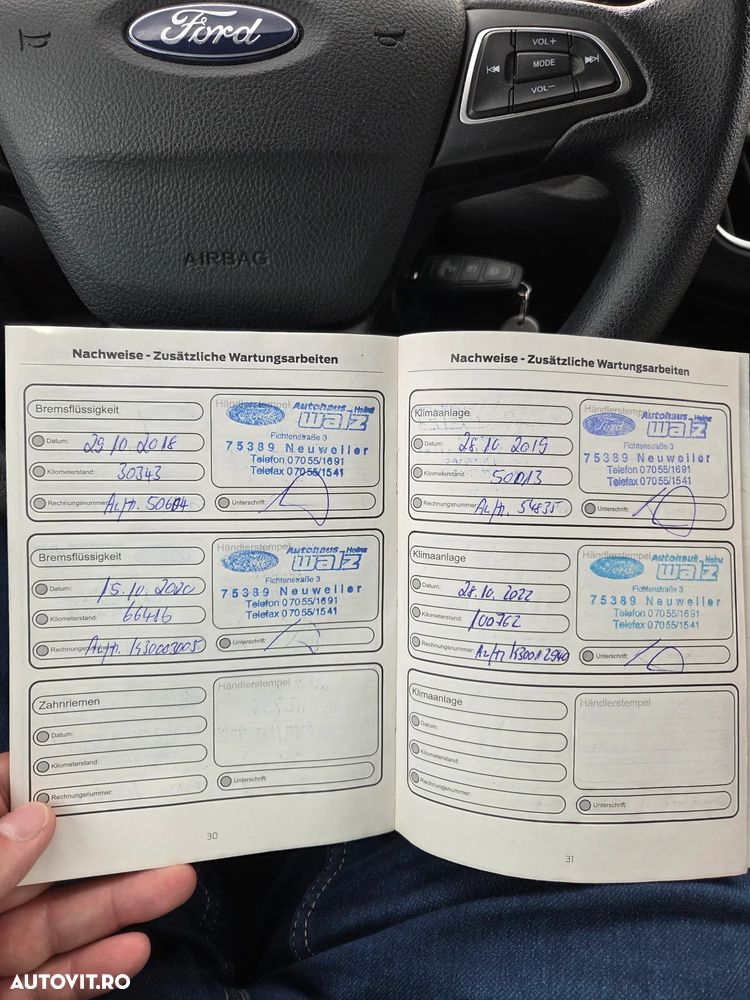 Ford
VOL+
MODE
VOL-
AIRBAG
Nachweise - Zusätzliche Wartungsarbeiten
Bremsflüssigkeit
Datum: 29.10.2018
Kilometerstand: 30343
Rechnungsnummer:
Händlerstempel
Ford
Autohaus Heinz
walz
Fichtenstraße 3
75389 Neuweiler
Telefon 07055/1691
Telefax 07055/1541
Unterschrift:
Bremsflüssigkeit
Datum: 15.10.2020
Kilometerstand: 66416
Rechnungsnummer:
Händlerstempel
Ford
Autohaus Heinz
walz
Fichtenstraße 3
75389 Neuweiler
Telefon 07055/1691
Telefax 07055/1541
Unterschrift:
Zahnriemen
Datum:
Kilometerstand:
Rechnungsnummer:
Händlerstempel
Unterschrift:
30
Nachweise - Zusätzliche Wartungsarbeiten
Klimaanlage
Datum: 28.10.2019
Kilometerstand: 50013
Rechnungsnummer: 54835
Händlerstempel
Ford
Autohaus Heinz
walz
Fichtenstraße 3
75389 Neuweiler
Telefon 07055/1691
Telefax 07055/1541
Unterschrift:
Klimaanlage
Datum: 28.10.2022
Kilometerstand: 100762
Rechnungsnummer:
Händlerstempel
Ford
Autohaus Heinz
walz
Fichtenstraße 3
75389 Neuweiler
Telefon 07055/1691
Telefax 07055/1541
Unterschrift:
Klimaanlage
Datum:
Kilometerstand:
Rechnungsnummer:
Händlerstempel
Unterschrift:
31
AUTOVIT.RO